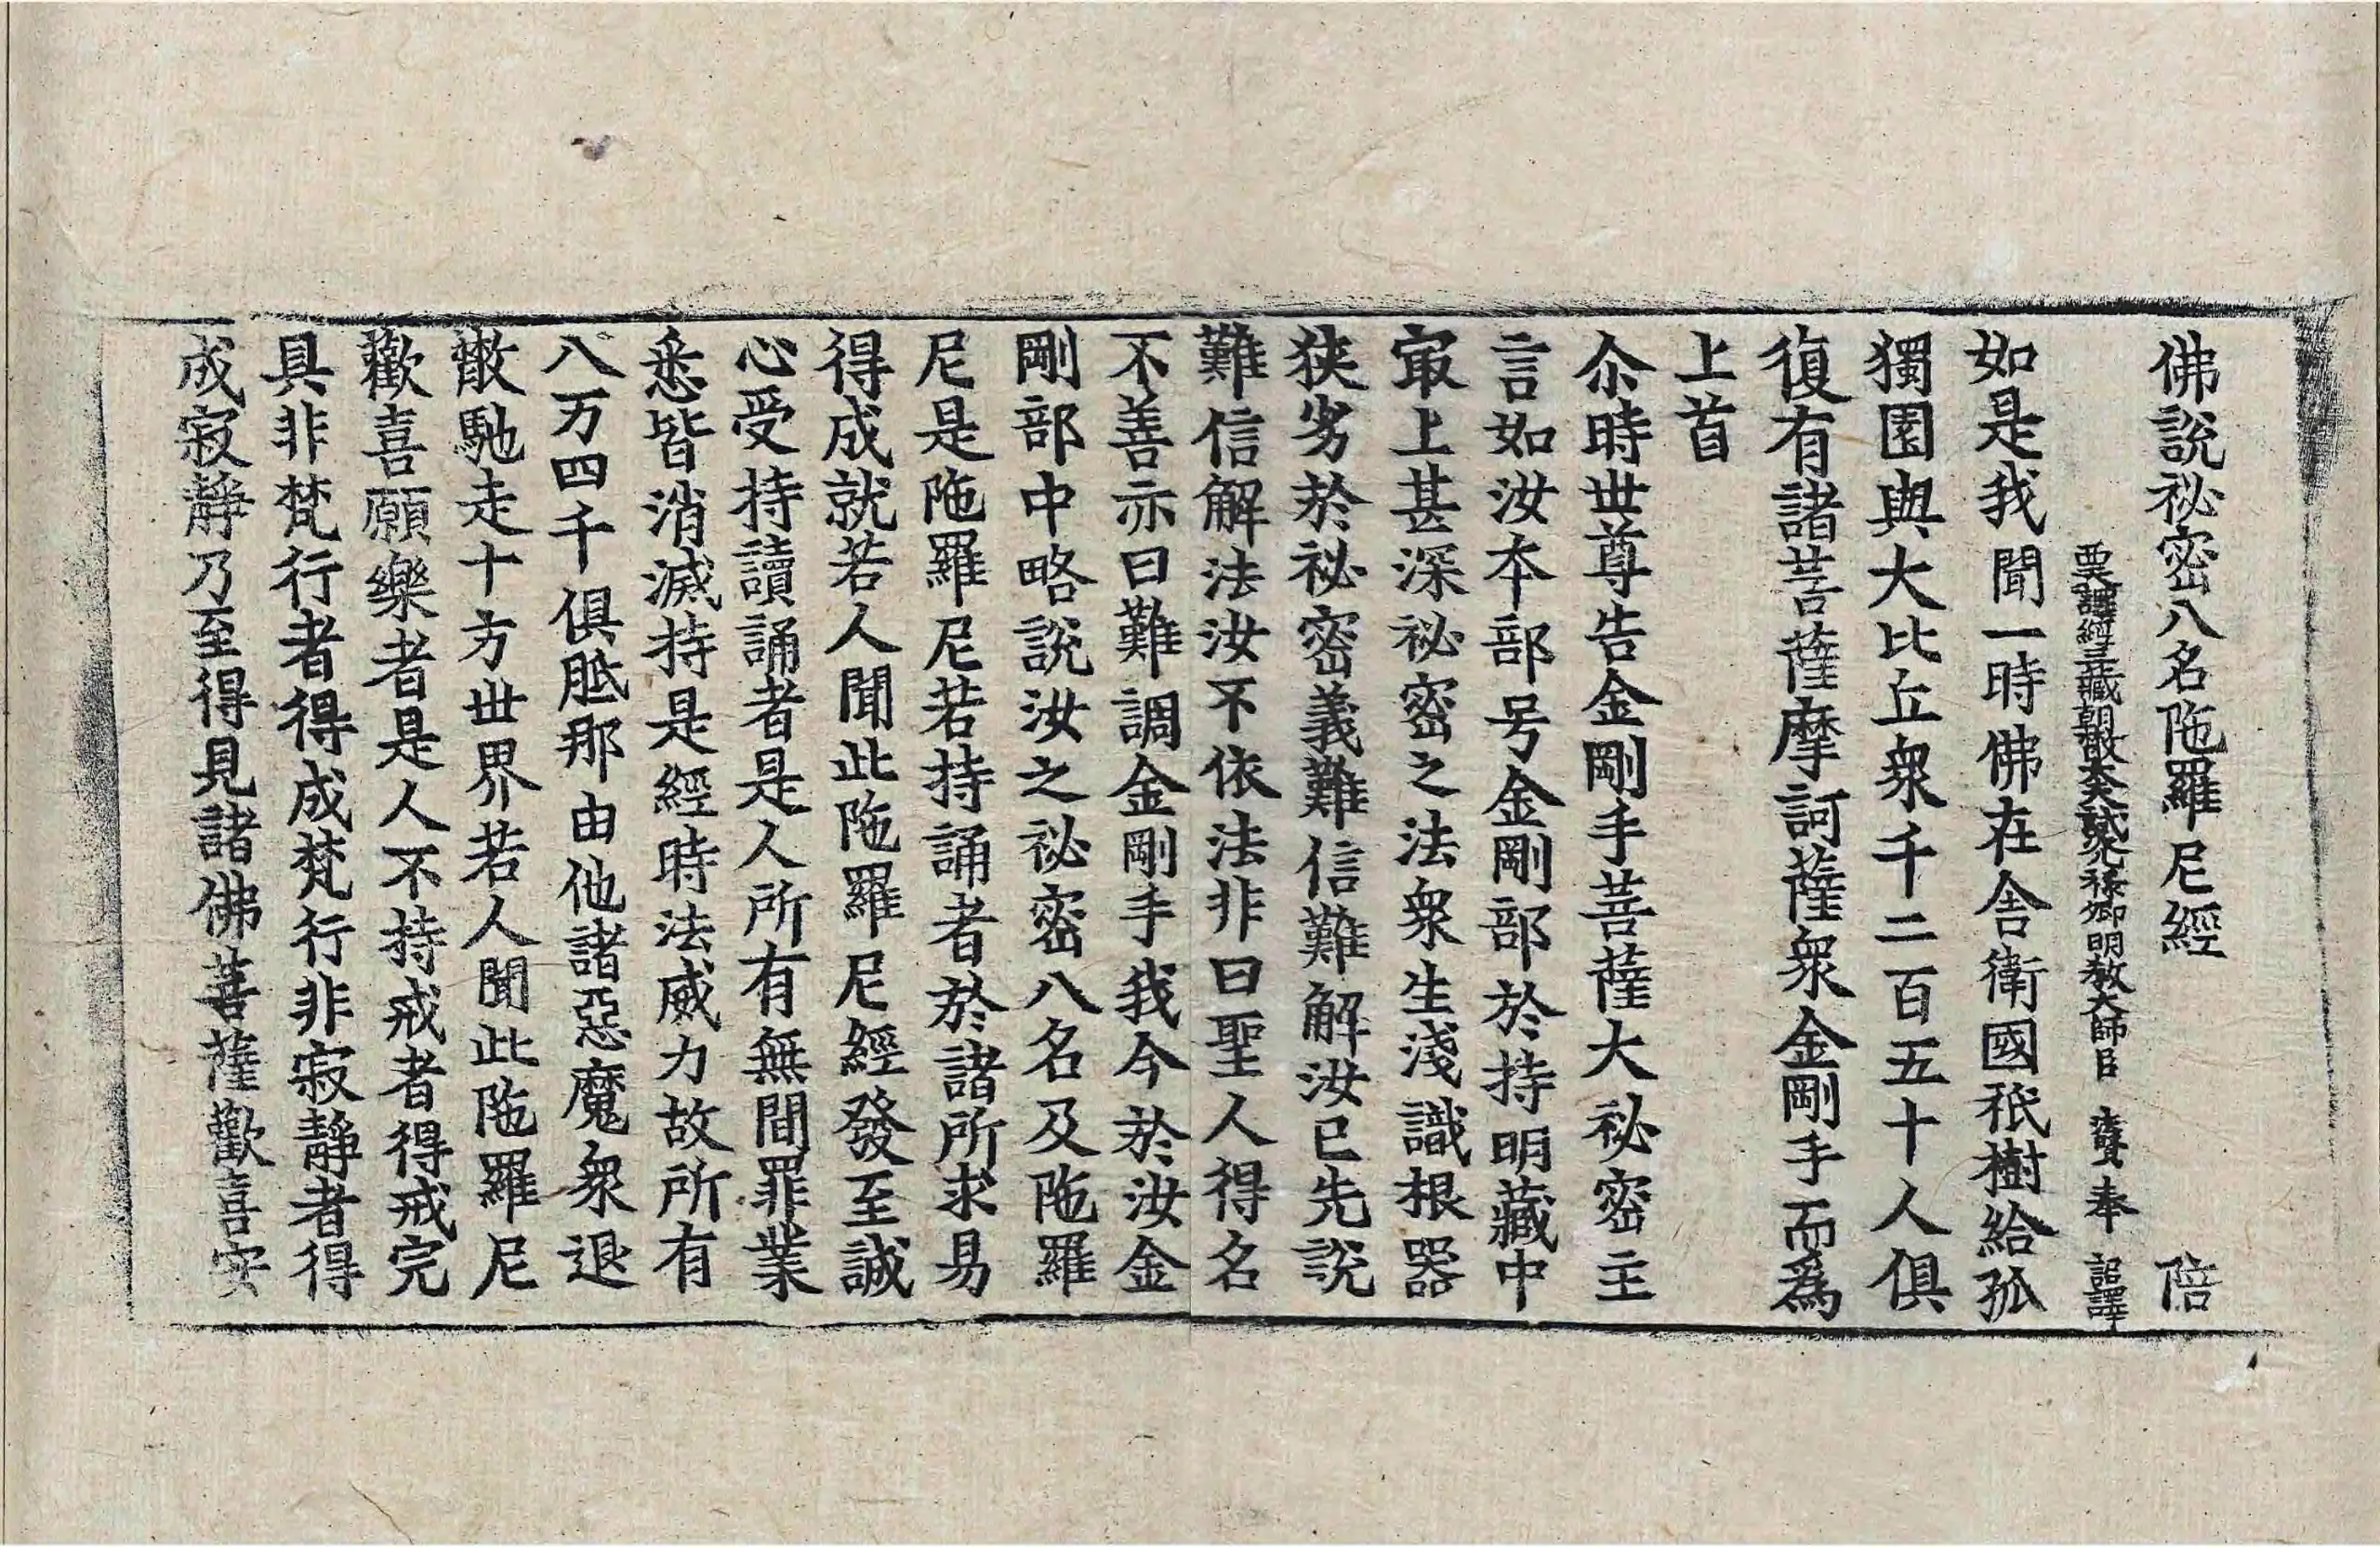 佛說祕密八名陁羅尼經 陪
西天譯經三藏朝散大夫試光祿卿明教大師臣 法賢奉 詔譯
如是我聞一時佛在舎衛國祇樹給孤
獨園與大比丘衆千二百五十人俱
復有諸菩薩摩訶薩衆金剛手而爲
上首
尒時世尊告金剛手菩薩大祕密主
言如汝本部号金剛部於持明藏中
㝡上甚深祕密之法衆生淺識根器
狹劣於祕密義難信難解汝已先說
難信解法汝不依法非曰聖人得名
不善亦曰難調金剛手我今於汝金
剛部中略說汝之祕密八名及陁羅
尼是陁羅尼若持誦者於諸所求易
得成就若人聞此陁羅尼經發至誠
心受持讀誦者是人所有無間罪業
悉皆消滅持是經時法威力故所有
八万四千俱胝那由他諸惡魔衆退
散馳走十方世界若人聞此陁羅尼
歡喜願樂者是人不持戒者得戒完
具非梵行者得成梵行非寂靜者得
成寂靜乃至得見諸佛菩薩歡喜安